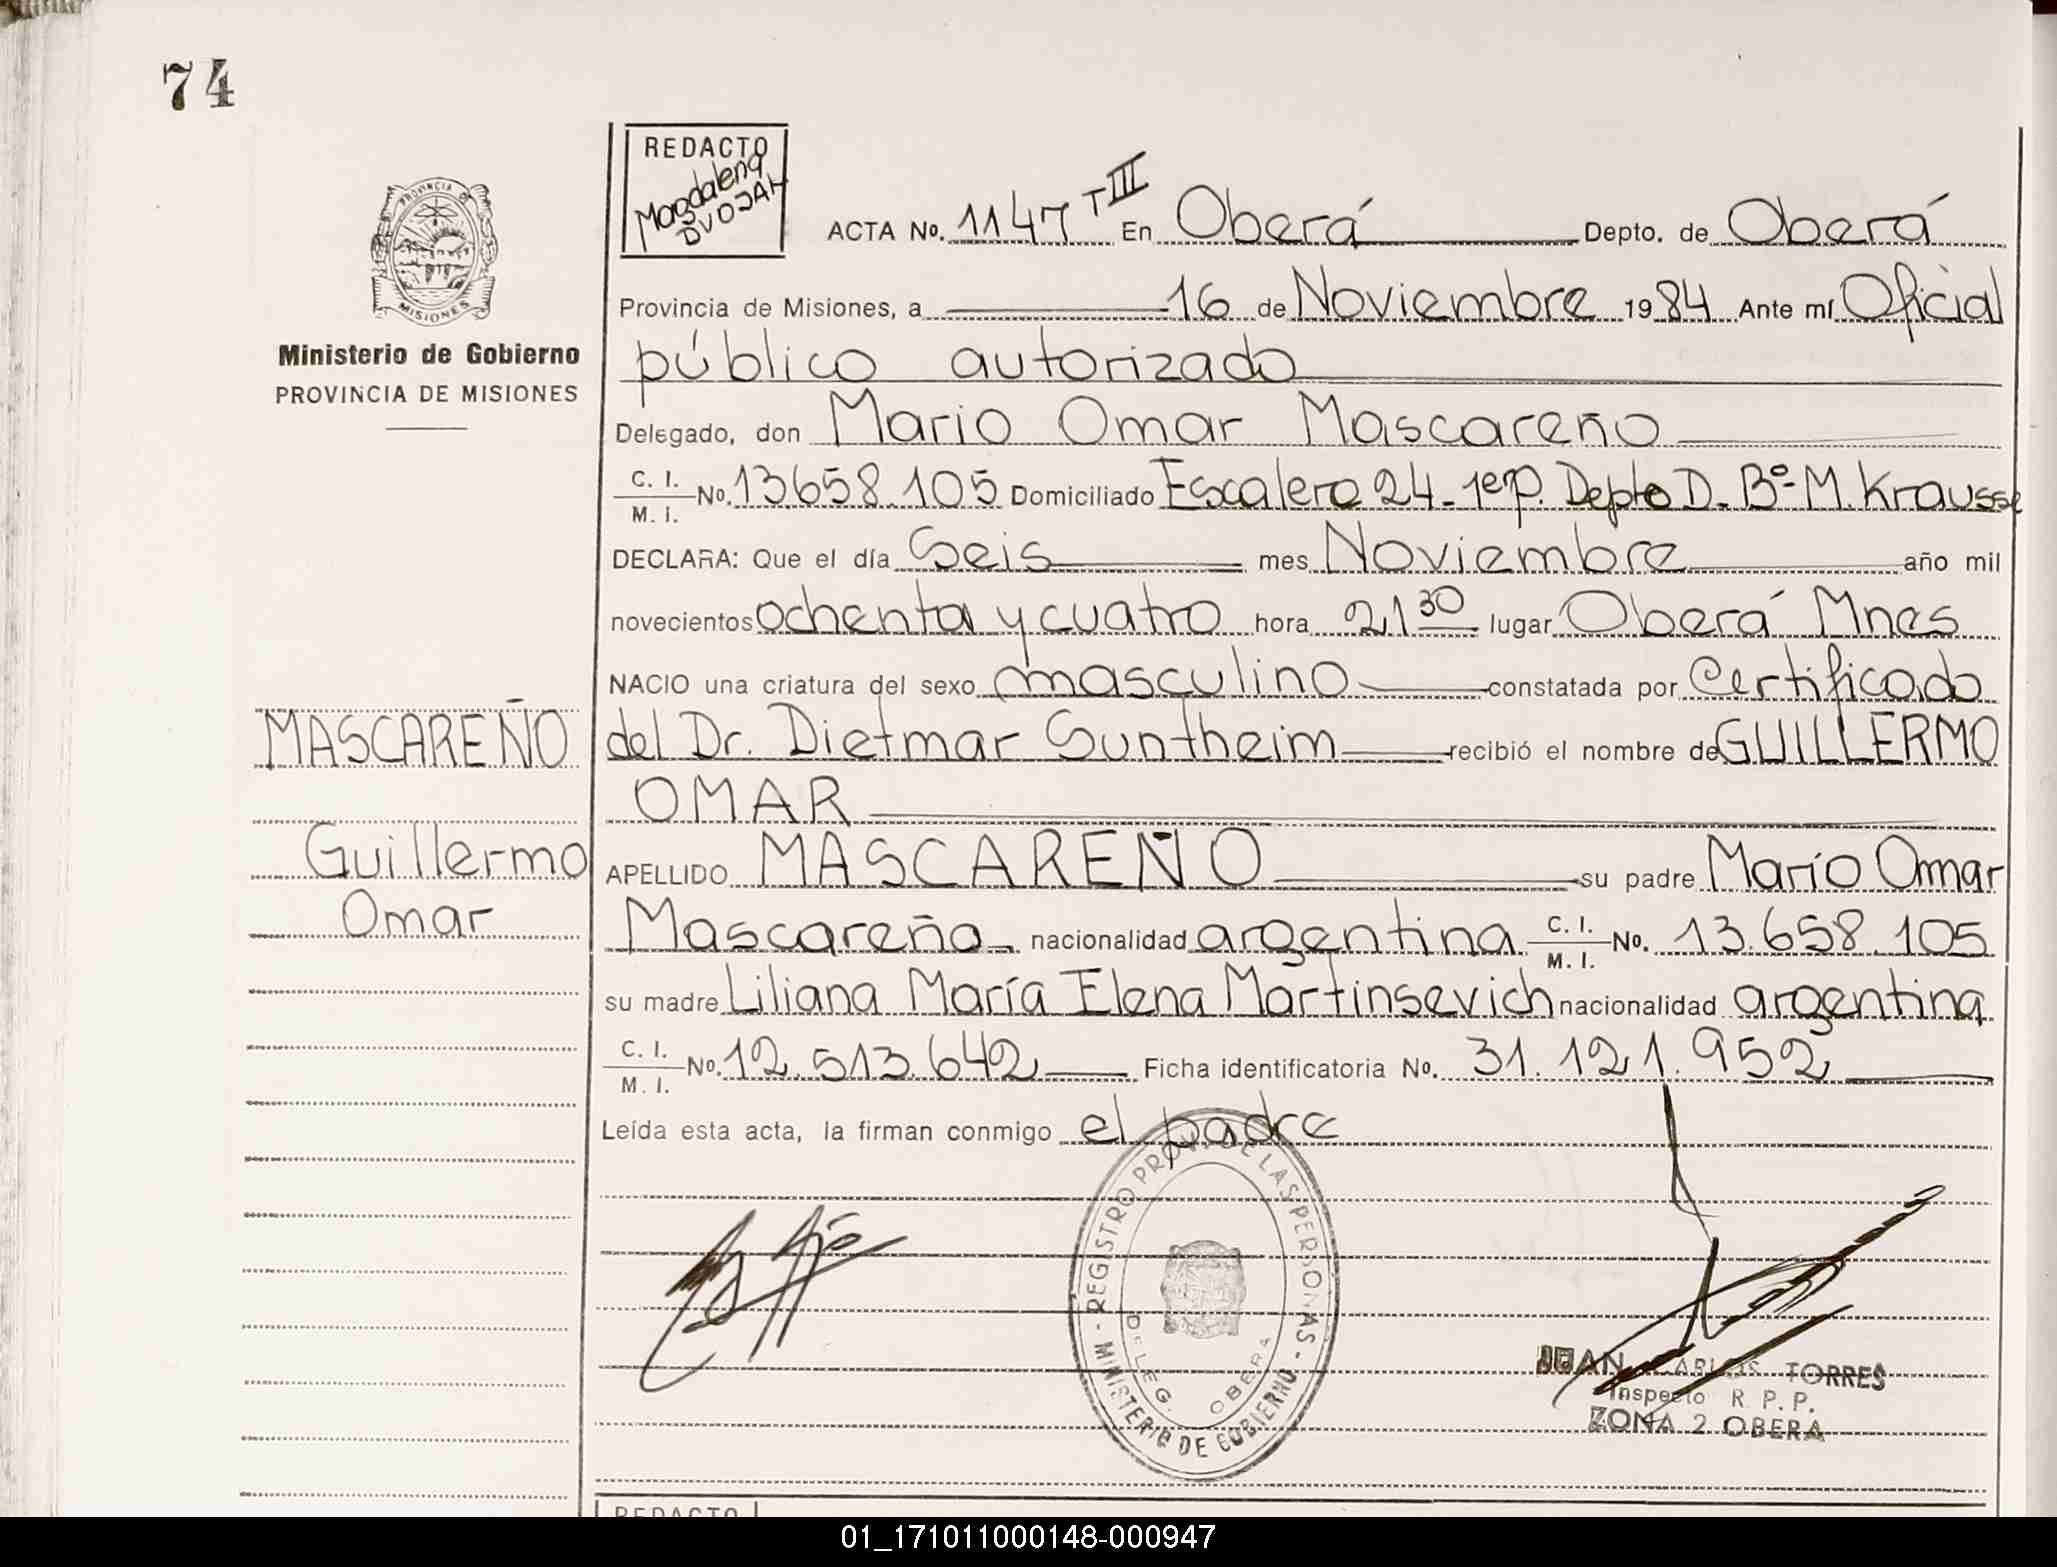 74
REDACTO
Magdalena
DVOJAK
ACTA No. 1147 TIII En Oberá Depto. de Oberá
PROVINCIA DE
MISIONES
Provincia de Misiones, a 16 de Noviembre 1984 Ante mí Oficial
Ministerio de Gobierno
PROVINCIA DE MISIONES
público autorizado
Delegado, don Mario Omar Mascareño
C. I.
M. I. No. 13.658.105 Domiciliado Escalera 24-1er p. Depto D. Bº M. Krausse
DECLARA: Que el día Seis mes Noviembre año mil
novecientos ochenta y cuatro hora 21 30 lugar Oberá Mnes
NACIO una criatura del sexo masculino constatada por Certificado
MASCAREÑO
del Dr. Dietmar Suntheim recibió el nombre de GUILLERMO
OMAR
Guillermo
Omar
APELLIDO MASCAREÑO su padre Mario Omar
Mascareño nacionalidad argentina C. I. M. I. No. 13.658.105
su madre Liliana María Elena Martinsevich nacionalidad argentina
C. I.
M. I. No. 12.513.642 Ficha identificatoria No. 31.121.952
Leída esta acta, la firman conmigo el padre
REGISTRO PROV. DE LAS PERSONAS - MINISTERIO DE GOBIERNO -
DELEG. OBERA
JUAN CARLOS TORRES
Inspecto R. P. P.
ZONA 2 OBERA
REDACTO
01_171011000148-000947